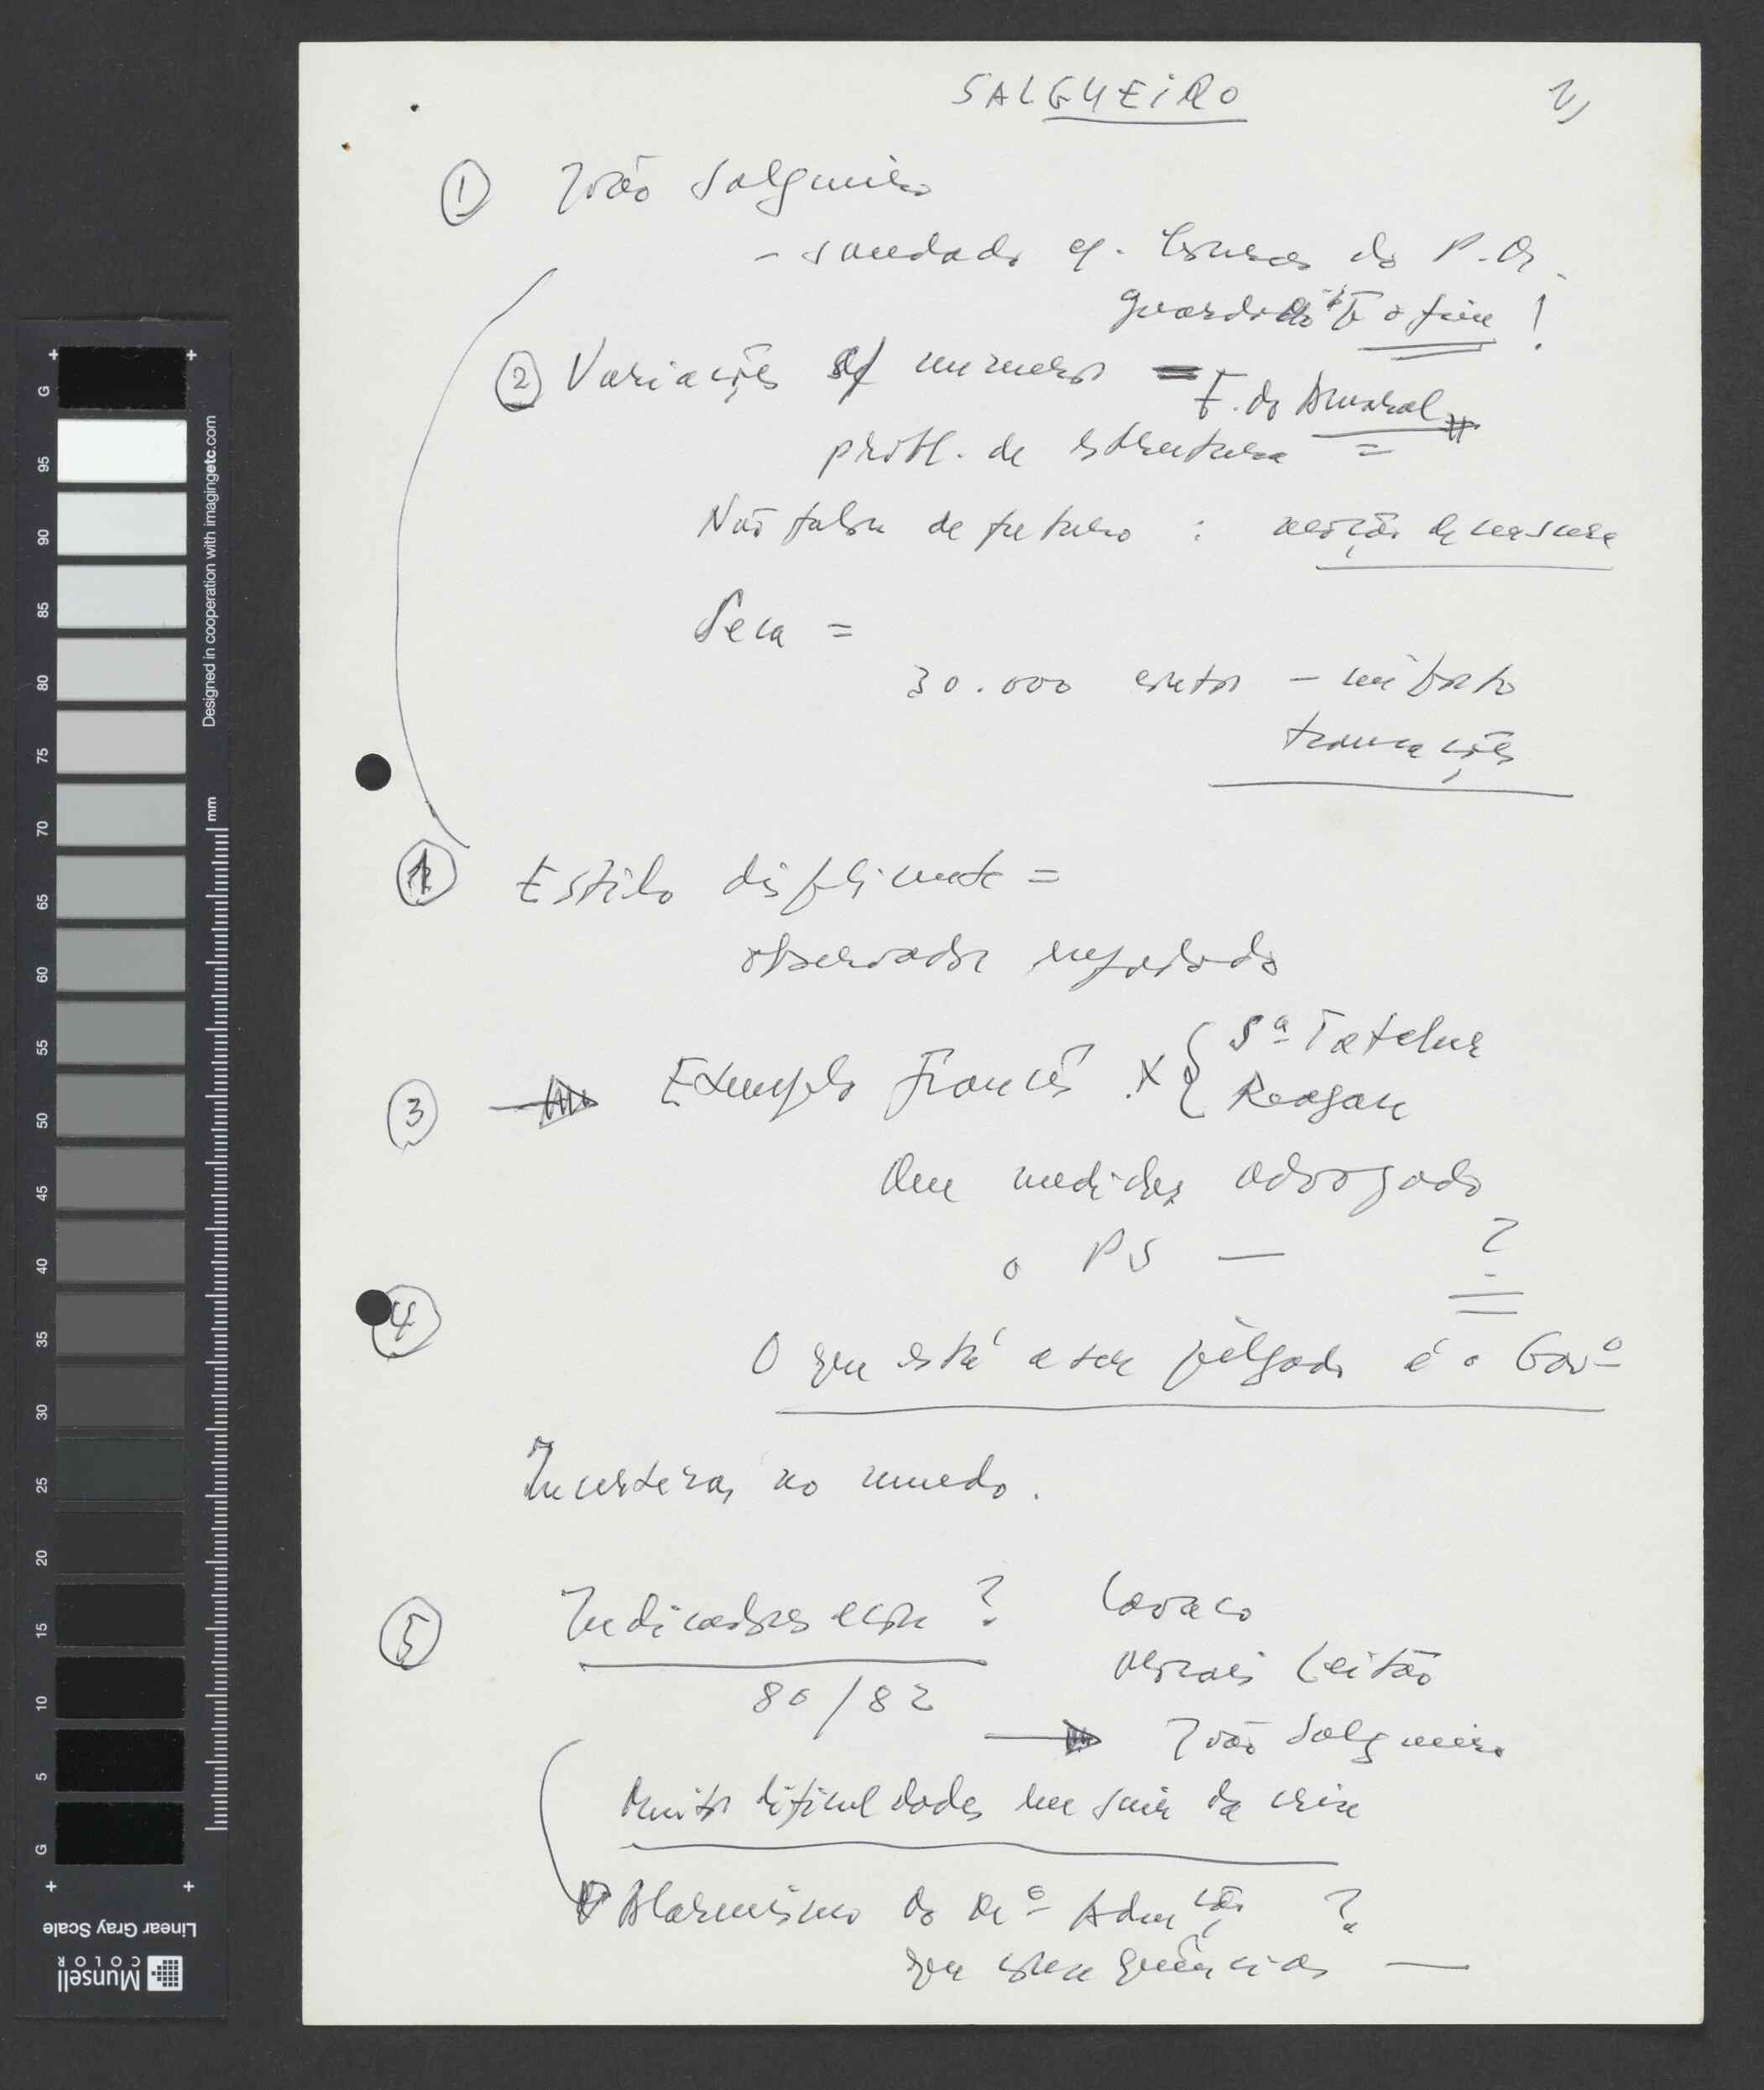 SALGUEIRO
①
João Salgueiro
- saudado
guardado o fim !
② Variações s/ um verso =
F. do Amaral
probl. de estrutura =
Não falou de futuro : moção de censura
Seca =
30.000 contos -
①
Estilo displicente =
observador
③
Exemplo Francês x { Sª Tatcher
Reagan
Que medidas advogado
o PS — ?
④
O que está a ser julgado é o Govº
Incertezas no mundo.
⑤
Indicadores econ ? Cavaco
80/82
Morais Leitão
João Salgueiro
Muitas dificuldades em sair da crise
Alarmismo do Mº Admção ?
que consequências —
G
95
90
85
80
75
70
65
60
55
50
45
40
35
30
25
20
15
10
5
G
mm
Designed in cooperation with imagingetc.com
Linear Gray Scale
Munsell
COLOR